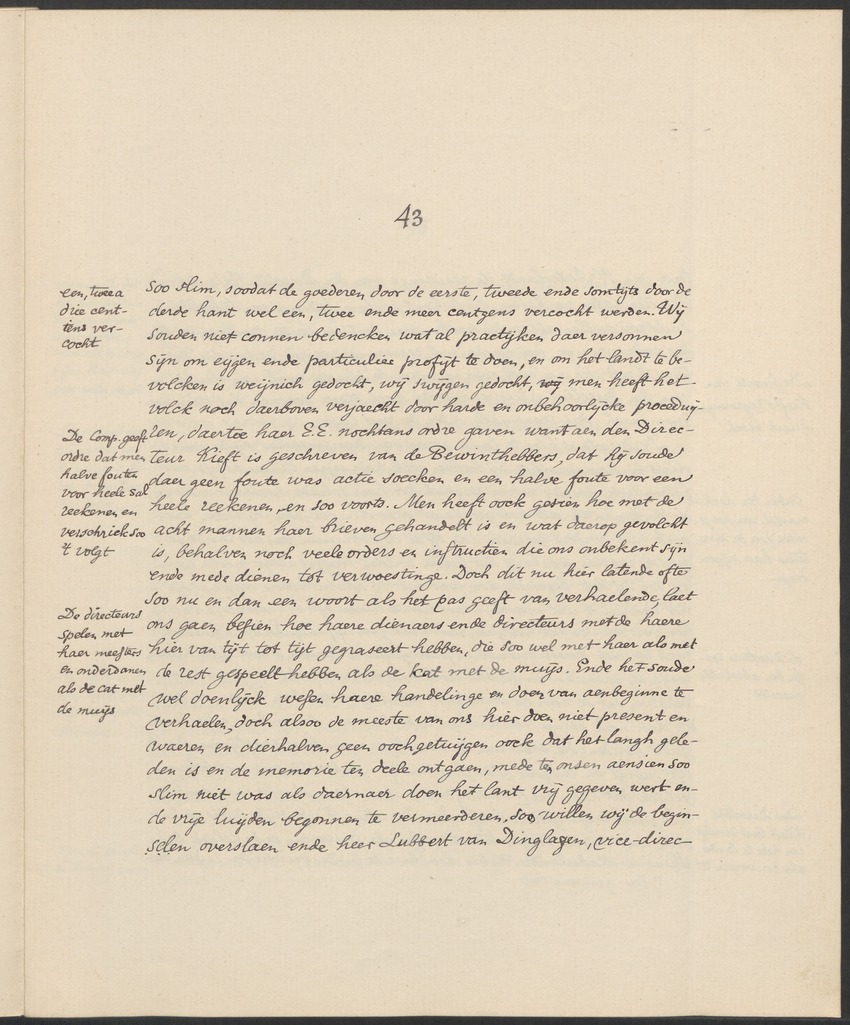 43
een, twee a
drie cent-
tens ver-
cocht
soo slim, soodat de goederen door de eerste, tweede ende somtijts door de
derde hant wel een, twee ende meer centgens vercocht werden. Wij
souden niet connen bedencken wat al practijken daer versonnen
sijn om eijgen ende particulier profijt te doen, en om het landt te be-
volcken is weijnich gedocht, wij swijgen gedocht, wij men heeft het
volck noch daerboven verjaecht door harde en onbehoorlijcke proceduij-
len, daertee haer E.E. nochtans ordre gaven want aen den Direc-
teur Kieft is geschreven van de Bewinthebbers, dat hij soude
daer geen foute was actie soecken en een halve foute voor een
heele reekenen, en soo voorts. Men heeft oock gesien hoe met de
acht mannen haer brieven gehandelt is en wat daerop gevolcht
is, behalven noch veele orders en instructien die ons onbekent sijn
ende mede dienen tot verwoestinge. Doch dit nu hier latende ofte
soo nu en dan een woort als het pas geeft van verhaelende, laet
ons gaen besien hoe haere dienaers ende directeurs met de haere
hier van tijt tot tijt gegraseert hebben, die soo wel met haer als met
de rest gespeelt hebben als de kat met de muijs. Ende het soude
wel doenlijck wesen haere handelinge en doen van aenbeginne te
verhaelen, doch alsoo de meeste van ons hier doen niet present en
waeren en dierhalven geen oochgetuijgen oock dat het langh gele-
den is en de memorie ten deele ontgaen, mede ten onsen aensien soo
slim niet was als daernaer doen het lant vrij gegeven wert en-
de vrije luijden begonnen te vermeerderen, soo willen wij de begin-
selen overslaen ende heer Lubbert van Dinglagen, vice-direc-
De Comp. geeft
ordre dat men
halve fouten
voor heele sal
reekenen en
verschrick soo
't volgt
De directeurs
spelen met
haer meesters
en onderdanen
als de cat met
de muijs